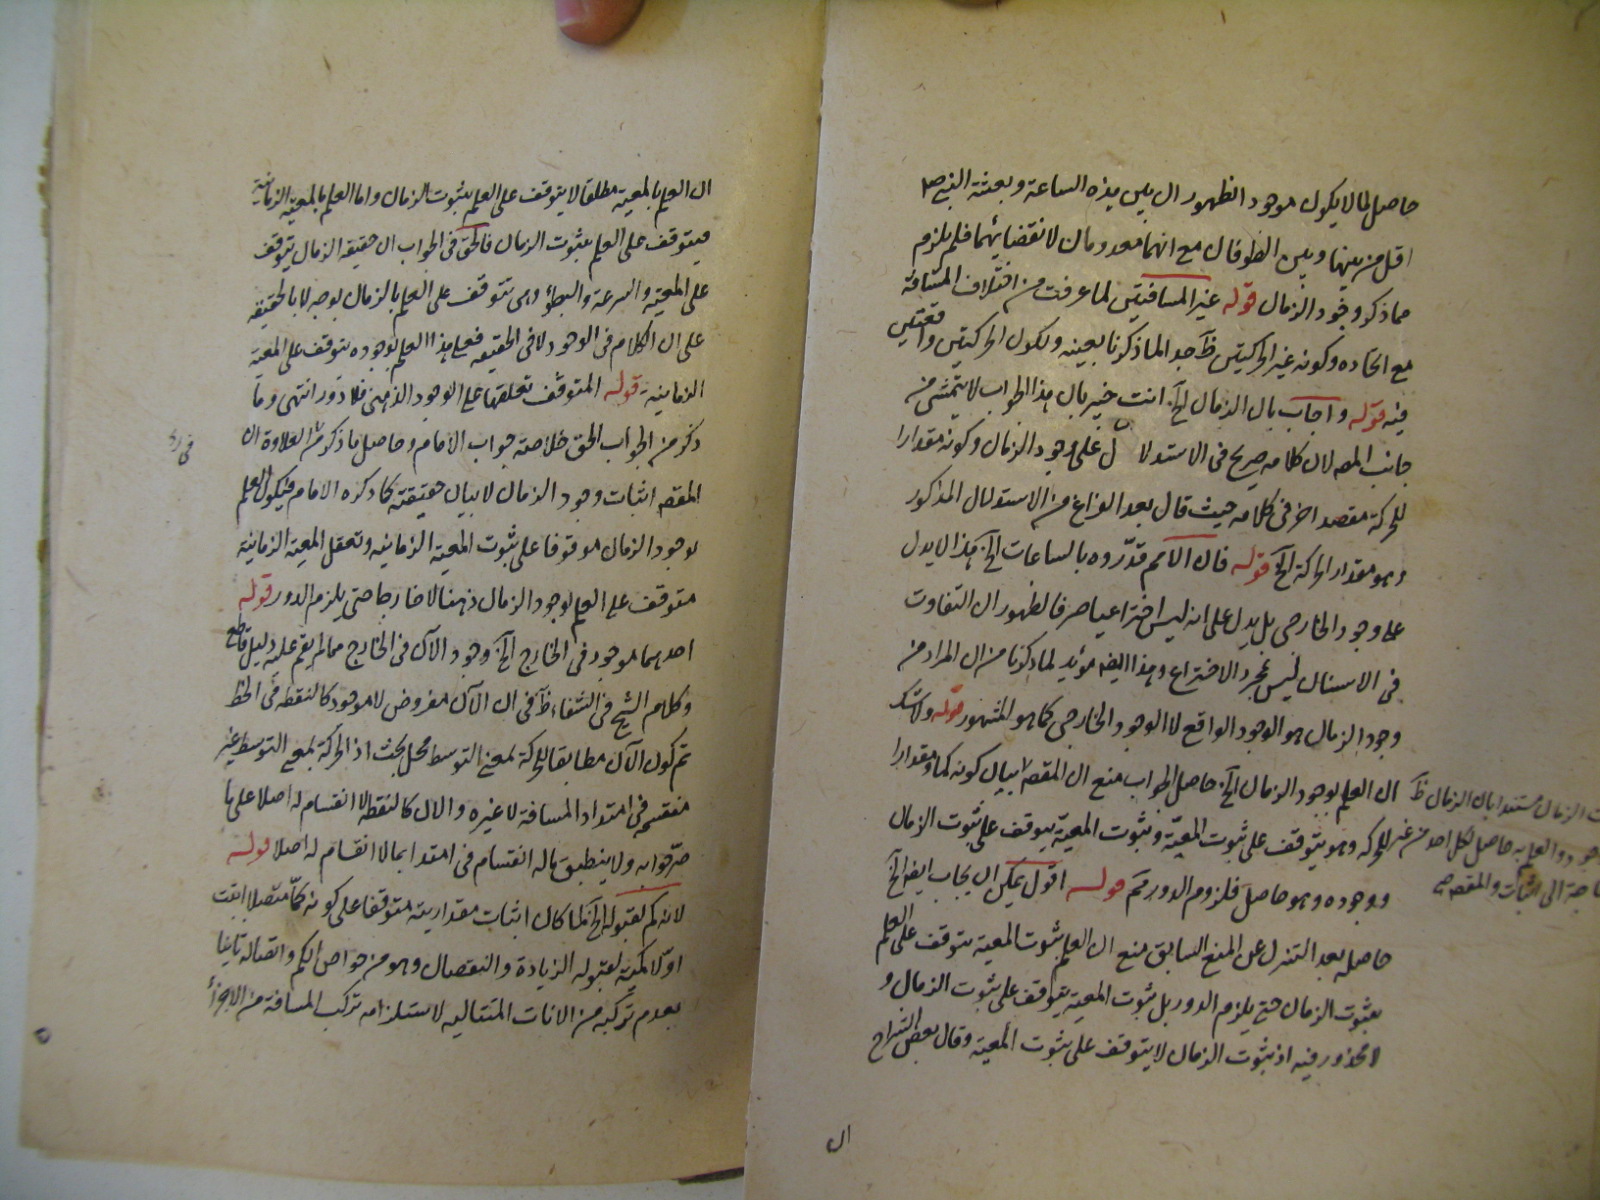 حاصل لما لا يكون موجود الظهور ان بين هذه الساعة وبعثة النبي صلعم
اقل من بينها وبين الطوفان مع انهما معدومان لانقضائهما فلم يلزم
مما ذكر وجود الزمان قوله غير المسافتين لما عرفت من اختلاف المسافة
مع اتحاده وكونه غير الحركتين ظ جدا لما ذكرنا بعينه ولكون الحركتين واقعتين
فيه قوله واجاب بان الزمان الخ انت خبير بان هذا الجواب لا يتمشى من
جانب المصـ لان كلامه صريح في الاستدلال على وجود الزمان وكونه مقدارا
للحركة مقصد اخر في كلامه حيث قال بعد الفراغ من الاستدلال المذكور
وهو مقدار الحركة الخ قوله فان الامم قدّروه بالساعات الخ هذا لا يدل
على وجود الخارجي بل يدل على انه ليس اختراعيا صرفا لظهور ان التفاوت
في الامثال ليس بمجرد الاختراع وهذا ايضا مؤيد لما ذكرنا من ان المراد من
وجود الزمان هو الوجود الواقع لا الوجود الخارجي كما هو المشهور قوله ولا شك
ان العلم بوجود الزمان الخ حاصل الجواب منع ان المقصـ بيان كونه كما ومقدارا
للحركة وهو يتوقف على ثبوت المعيّة وثبوت المعيّة يتوقف على ثبوت الزمان
ووجوده وهو حاصل فلزوم الدور مم قوله اقول يمكن ان يجاب ايضا الخ
حاصله بعد التنزل عن المنع السابق منع ان العلم بثبوت المعية يتوقف على العلم
بثبوت الزمان حتى يلزم الدور بل ثبوت المعية يتوقف على ثبوت الزمان و
لا محذور فيه اذ ثبوت الزمان لا يتوقف على ثبوت المعية وقال بعض الشراح
ان
الزمان مستندا بان الزمان ظ
والعلم به حاصل لكل احد من غير
حاجة الى اثبات والمقصـ
ان العلم بالمعية مطلقا لا يتوقف على العلم بثبوت الزمان واما العلم بالمعية الزمانية
فيتوقف على العلم بثبوت الزمان فالحق في الجواب ان حقيقة الزمان يتوقف
على المعية والسرعة والبطؤ وهى تتوقف على العلم بالزمان بوجه لا بالحقيقة
على ان الكلام في الوجود لا في الحقيقة فعلى هذا العلم بوجوده يتوقف على المعية
الزمانية قوله المتوقف تعلقها على الوجود الذهني فلا دور انتهى وما
ذكر من الجواب الحق خلاصة جواب الامام وحاصل ما ذكر من العلاوة ان
المقصـ اثبات وجود الزمان لا بيان حقيقته كما ذكره الامام فيكون العلم
بوجود الزمان موقوفا على ثبوت المعية الزمانية وتعقل المعية الزمانية
متوقف على العلم بوجود الزمان ذهنا لا خارجا حتى يلزم الدور قوله
احدهما موجود في الخارج الخ وجود الآن في الخارج مما لم يقم عليه دليل قاطع
وكلام الشيخ في الشفاء ظ في ان الآن مفروض لا موجود كالنقطة في الخط
ثم كون الآن مطابقا للحركة بمعنى التوسط محل بحث اذ الحركة بمعنى التوسط غير
منقسمة في امتداد المسافة لا غيره والان كالنقطة لا انقسام له اصلا على ما
صرّحوا به ولا ينطبق ما له انقسام في امتداد بما لا انقسام له اصلا قوله
لانه كم لقبوله الخ لما كان اثبات مقداريته متوقفا على كونه كمّا متصلا اثبت
اوّلا كميته لقبوله الزيادة والنقصان وهو من خواص الكم واتصاله ثانيا
بعدم تركبه من الانات المتتالية لاستلزامه تركب المسافة من الاجزاء